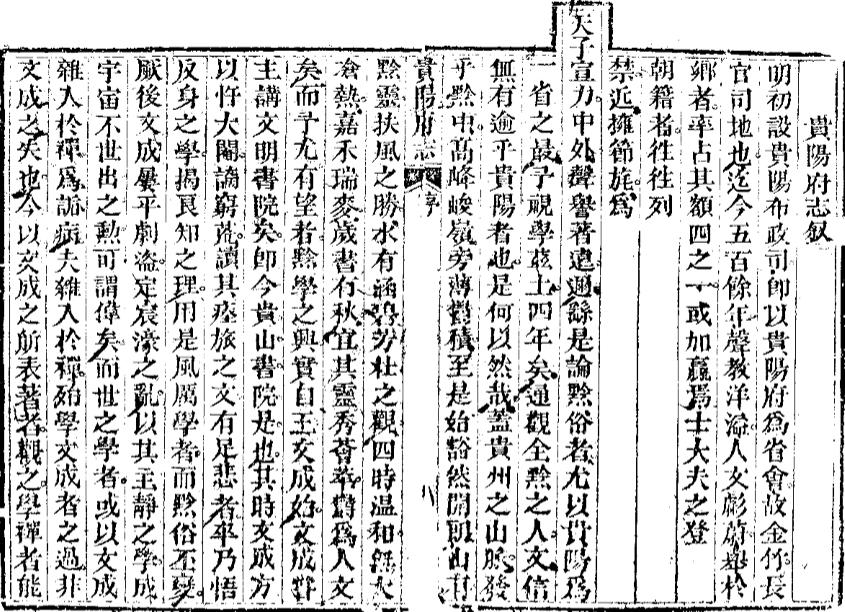 貴陽府志叙
明初設貴陽布政司卽以貴陽府爲省會故金作長
官司地也迄今五百餘年聲教洋溢人文彪蔚舉於
鄉者率占其額四之一或加贏焉士大夫之登
朝籍者徃徃列
禁近擁節旄爲
天子宣力中外聲譽著遐邇繇是論黔俗者尤以貴陽爲
一省之最予視學茲土四年矣通觀全黔之人文信
無有逾乎貴陽者也是何以然哉蓋貴州之山脈發
乎黔中高峰峻嶺旁薄鬱積至是始豁然開朗山有
貴陽府志 序 八
黔靈扶風之勝水有涵碧芳杜之觀四時温和無大
滄熱嘉禾瑞麥歲書有秋宜其靈秀薈萃鬱爲人文
矣而予尤有望者黔學之興實自王文成始文成嘗
主講文明書院矣卽今貴山書院是也其時文成方
以忤大閹謫窮荒讀其瘞旅之文有足悲者卒乃悟
反身之學揭良知之理用是風厲學者而黔俗丕變
厥後文成屢平劇盜定宸濠之亂以其主靜之學成
宇宙不世出之勳可謂偉矣而世之學者或以文成
雜入於禪爲詬病夫雜入於禪殆學文成者之過非
文成之失也今以文成之所表著者觀之學禪者能